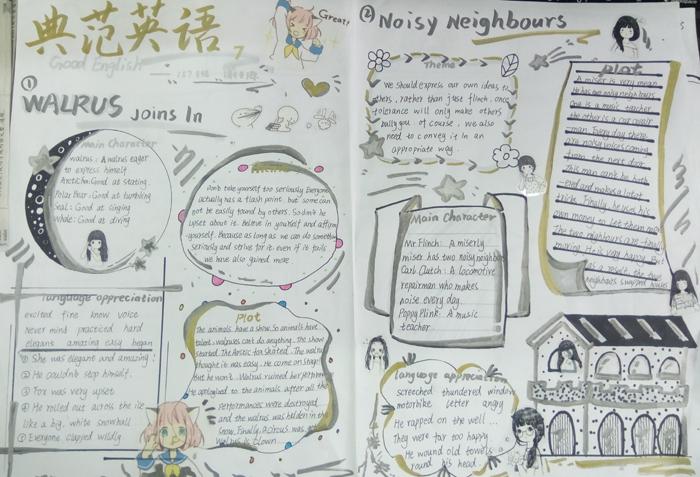 典范英语 7
Good English
Great!
①
WALRUS Joins In
Main Character
walrus: A walrus eager
to express himself
Arctic fox: Good at skating.
Polar Bear: Good at tumbling
Seal: Good at singing
Whale: Good at diving
Don't take yourself too seriously. Everyone
actually has a flash point, but some can
not be easily found by others. So don't be
upset about it. Believe in yourself and affirm
yourself. Because as long as we can do something
seriously and strive for it, even if it fails
we have also gained more
language appreciation
excited fine know voice
Never mind practiced hard
elegant amazing easy began
① She was elegant and amazing!
② He couldn't stop himself.
③ Fox was very upset
④ He rolled out across the ice
like a big white snowball
Everyone clapped wildly
Plot
The animals have a show. So animals have
talent, walruses can't do anything. The show
started. The Arctic fox skated. The walrus
thought it was easy. He came on stage
But he won't. Walrus ruined her performance
He apologized to the animals after all the
performances were destroyed
and the walrus was hidden in the
snow. Finally,
walrus is blown
② Noisy Neighbours
Theme
We should express our own ideas to
others, rather than just flinch, once
tolerance will only make others
bully you. Of course, we also
need to convey it in an
appropriate way.
Main Character
Mr. Flinch: A miserly
miser has two noisy neighbours
Carl Clutch: A locomotive
repairman who makes
noise every day
Poppy Plink: A music
teacher
Plot
A miser is very mean
He has two noisy neighbours
One is a music teacher
the other is a car repair
man. Every day there
are noisy voices coming
from the next door.
This man can't be both
and make a lot of
tricks. Finally, he uses his
own money to let them move
The two neighbours are finally
moving. He is very happy. But
as a result, the two
neighbours swap houses
language appreciation
screeched thundered window
motorbike letter angry
He rapped on the well...
They were far too happy
He wound old towels
round his head.